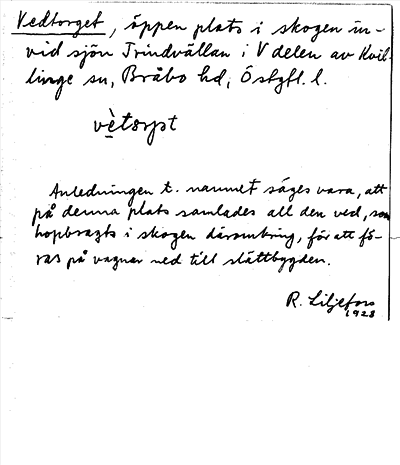 Vedtorget, öppen plats i skogen in-
vid sjön Trindvällan i V delen av Kvil-
linge sn, Bråbo hd, Östgtl. l.
vètorjət
Anledningen t. namnet säges vara, att
på denna plats samlades all den ved, som
hopbragts i skogen däromkring, för att fö-
ras på vagnar ned till slättbygden.
R. Liljefors
1928